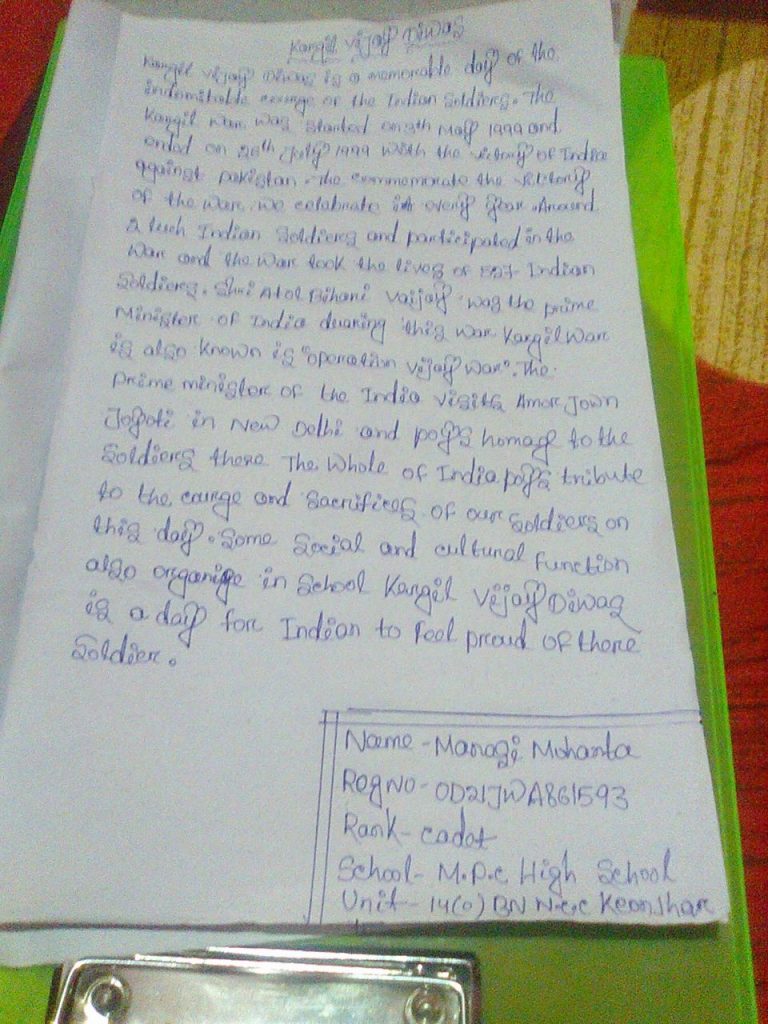 Kargil Vijay Diwas
Kargil Vijay Diwas is a memorable day of the
indomitable courge of the Indian Soldiers. The
Kargil war was started on 3th May 1999 and
ended on 26th July 1999 with the victory of India
against pakistan. The commemorate the victory
of the war we celebrate it every year. Around
2 lakh Indian Soldiers and participated in the
War and the War took the lives of 527 Indian
Soldiers. Shri Atol Bihari Vaijay was the prime
Minister of India duaring this war Kargil War
is also known is "operation vijay war". The
prime minister of the India visits Amor Jown
Joyoti in New Delhi and pays homage to the
Soldiers there The Whole of India pays tribute
to the courge and sacrifices of our Soldiers on
this day. Some Social and cultural function
also organige in School Kargil Vijay Diwas
is a day for Indian to feel proud of there
Soldier.
Name - Manasi Mohanta
Reg No - OD21JWA861593
Rank - cadet
School - M.P.C High School
Unit - 14(O) BN N.C.C Keonjhar